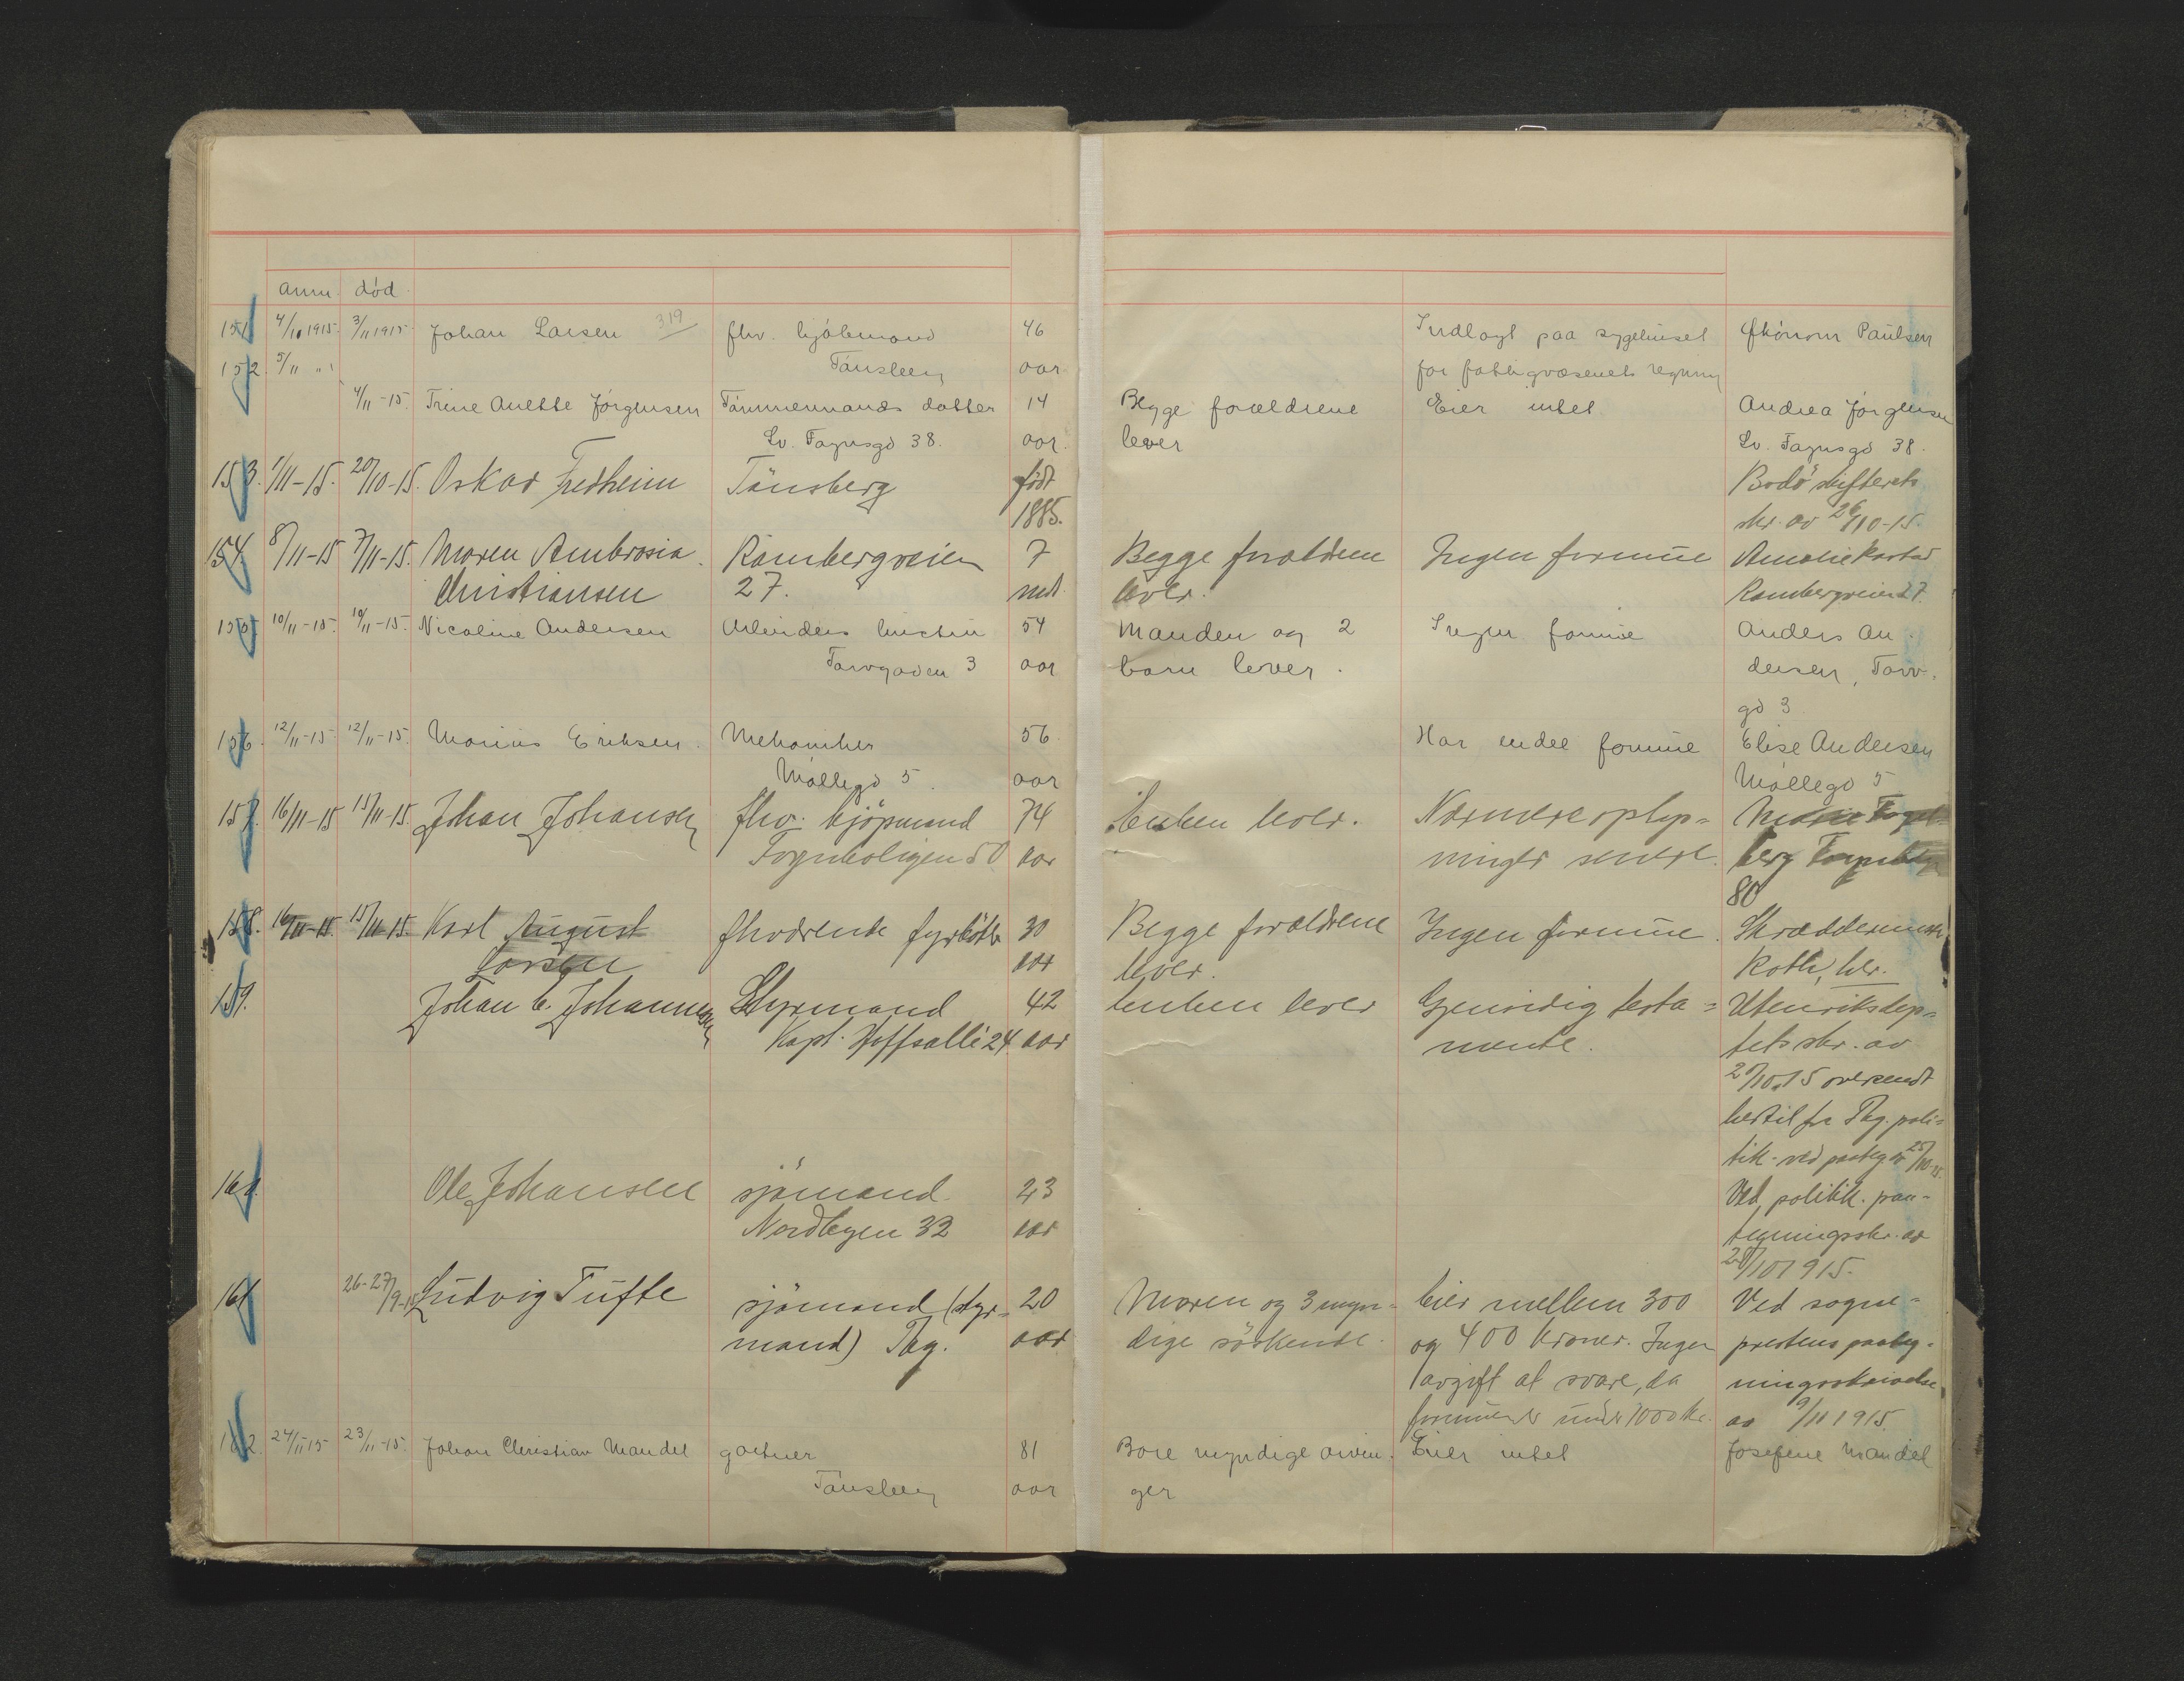 anm. død.
151 4/10 1915. 3/11 1915 Johan Larsen 319 fhv. kjøbmand 46 Indlagt paa sygehuset Økonom Paulsen
152 5/11 " Tønsberg aar for fattigvæsenets regning
4/11-15. Trine Anette Jørgensen Tømmermands datter 14 Begge forældrene Eier intet Andrea Jørgensen
Sv. Fognsgd 38. aar. lever Sv. Fognsgd 38.
153. 1/11-15. 20/10-15. Oskar Fredheim Tønsberg født Bodø skifterets
1885. skr. av 26/10-15.
154. 8/11-15 7/11-15. Maren Ambrosia Rambergveien 7 Begge forældrene Ingen formue Amalie
Christiansen 27. mdr. lever. Rambergveien 27.
155 10/11-15. 10/11-15. Nicoline Andersen Arbeiders hustru 54 Manden og 2 Ingen formue Anders An
Torvgaden 3 aar barn lever. dersen, Torv-
gd 3
156. 12/11-15 12/11-15. Marius Eriksen. Mekaniker 56 Har endel formue Elise Andersen
Møllegd 5 aar Møllegd 5
157. 16/11-15 15/11-15. Johan Johansen fhv. kjöpmand 74 Enken lever. Nærmere oplys-
Fognboligen 80 aar ninger senere.
80
158. 16/11-15. 15/11-15. Karl August fhværende fyrböter 30 Begge forældrene Ingen formue.
Larsen aar lever. her.
159. Johan C. Johannessen Styrmand 42 Enken lever Gjensidig testa- Utenriksdep-
Kapt. Hoffsallé 24 aar mente. tets skr. av
27/10.15 oversendt
hertil fra Tbg. poli-
tik. ved paategn. 25/10-15.
160. Ole Johansen sjömand 23 Ved politik. paa-
Nordbyen 32 aar tegningsskr. av
28/10 1915.
161 26-27/9-15 Ludvig Tufte sjömand (styr- 20 Moren og 3 myn- Eier mellem 300 Ved sogne-
mand) Tbg. aar dige söskende. og 400 kroner. Ingen prestens paateg-
avgift at svare, da ningsskrivelse
formuen er under 1000 kr. av 9/11 1915.
162. 24/11-15 23/11-15. Johan Christian Mandel gartner 81 Bare myndige arvin- Eier intet Josefine Mandel
Tønsberg aar ger